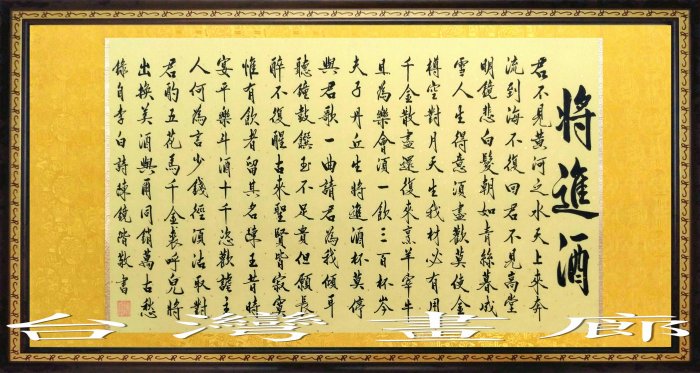 將進酒
君不見黃河之水天上來奔
流到海不復回君不見高堂
明鏡悲白髮朝如青絲暮成
雪人生得意須盡歡莫使金
樽空對月天生我材必有用
千金散盡還復來烹羊宰牛
且為樂會須一飲三百杯岑
夫子丹丘生將進酒杯莫停
與君歌一曲請君為我傾耳
聽鐘鼓饌玉不足貴但願長
醉不復醒古來聖賢皆寂寞
惟有飲者留其名陳王昔時
宴平樂斗酒十千恣歡謔主
人何為言少錢徑須沽取對
君酌五花馬千金裘呼兒將
出換美酒與爾同銷萬古愁
錄自李白詩陳鏡階敬書
台灣畫廊